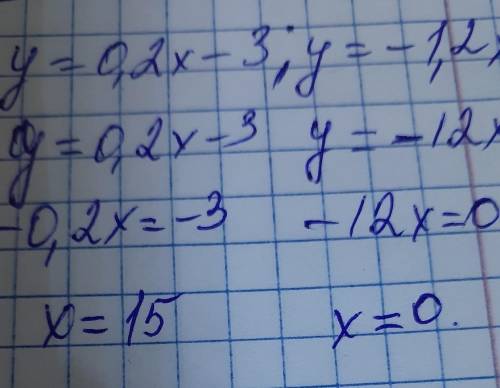 y = 0,2x - 3; y = -1,2x
y = 0,2x - 3 y = -12x
-0,2x = -3 -12x = 0
x = 15 x = 0.